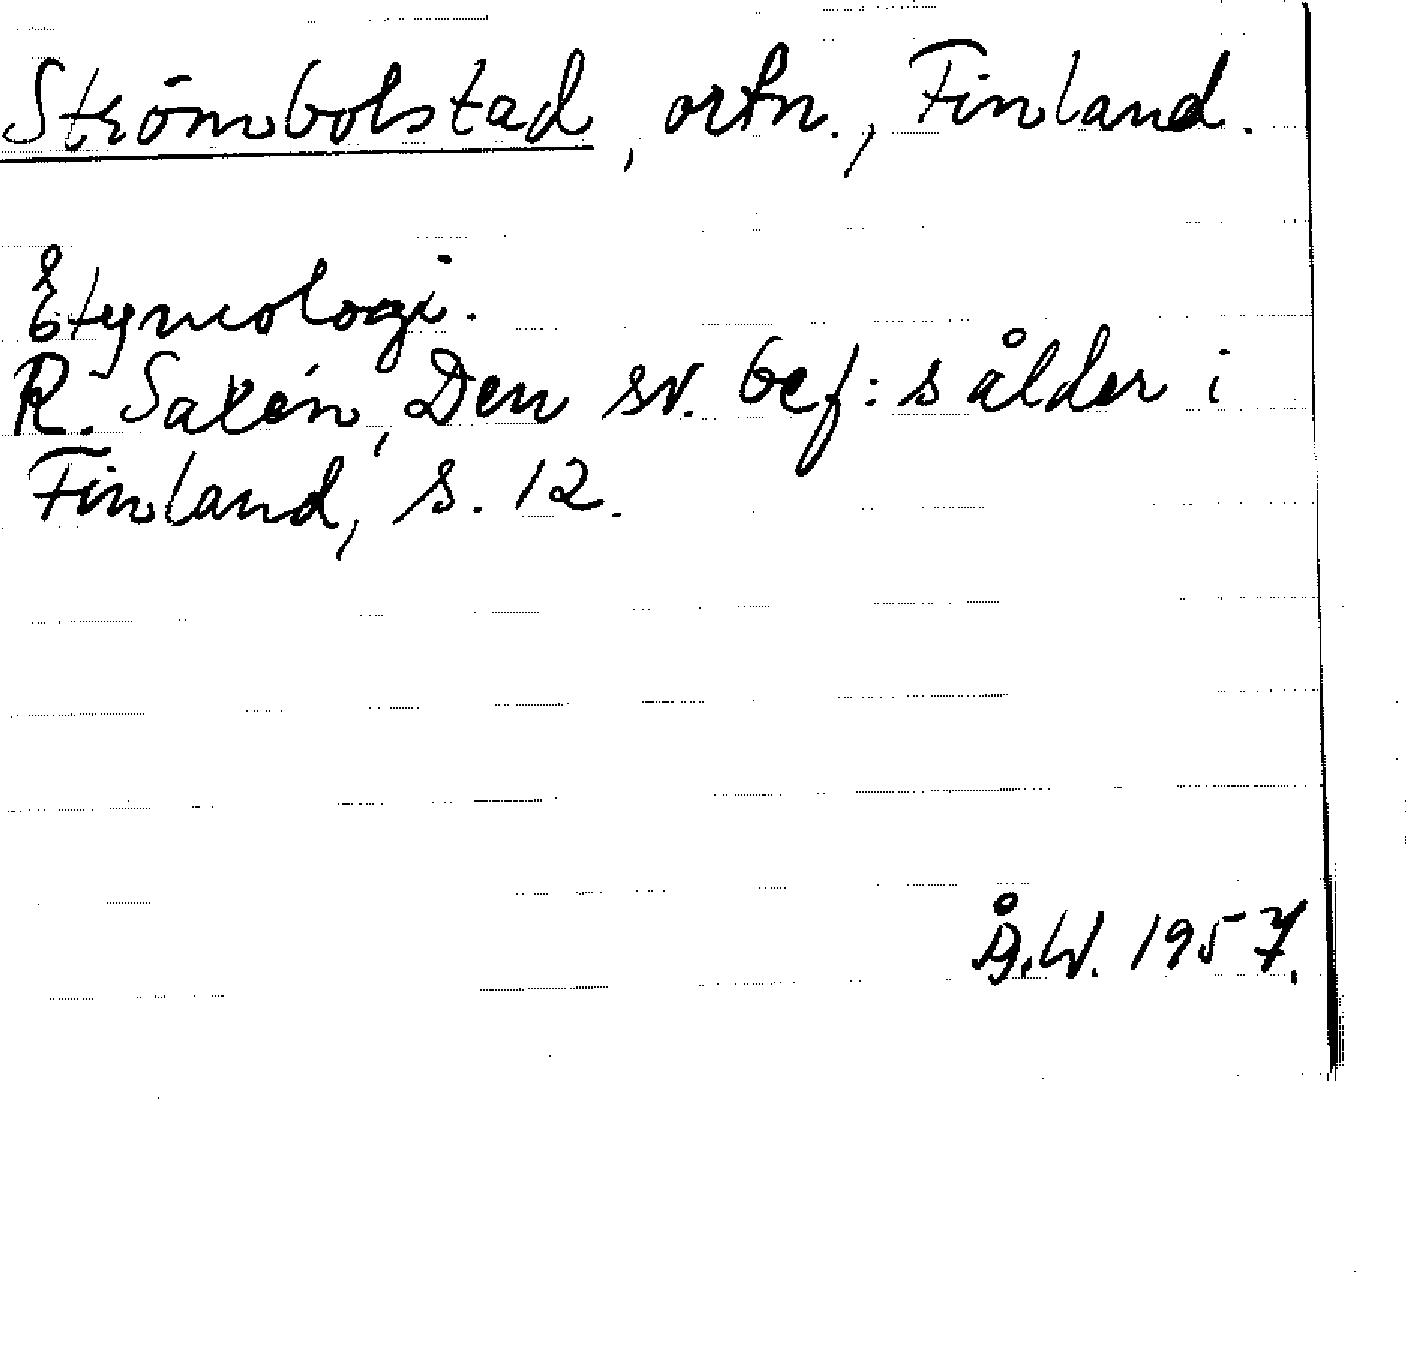 Strömbolstad, ortn., Finland.
Etymologi.
R. Saxén, Den sv. bef:s ålder i
Finland, s. 12.
Å.W. 1957.